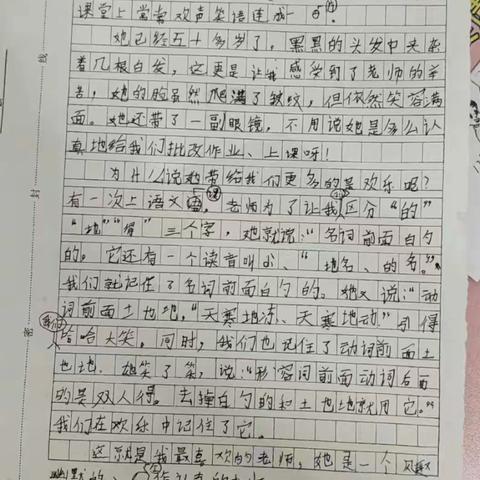 课堂上常常欢声笑语连成一
她已经五十多岁了，黑黑的头发中夹杂
着几根白发，这更是让我感受到了老师的辛
苦，她的脸虽然爬满了皱纹，但依然笑容满
面。她还带了一副眼镜，不用说她是多么认
真地给我们批改作业、上课呀！
为什么说她带给我们更多的是欢乐呢？
有一次上语文课，老师为了让我们区分“的”
“地”“得”三个字，她就说：“名词前面白勺
的。它还有一个读音叫dì、“地名、的名。”
我们就记住了名词前面白勺的。她又说：“动
词前面土也地，“天寒地冻、天寒地动”引得
哈哈大笑。同时，我们也记住了动词前面土
也地。她笑了笑，说：“形容词前面动词后面
的是双人得。去掉白勺的和土也地就用它。”
我们在欢乐中记住了它。
这就是我最喜欢的老师，她是一个风趣
幽默的、